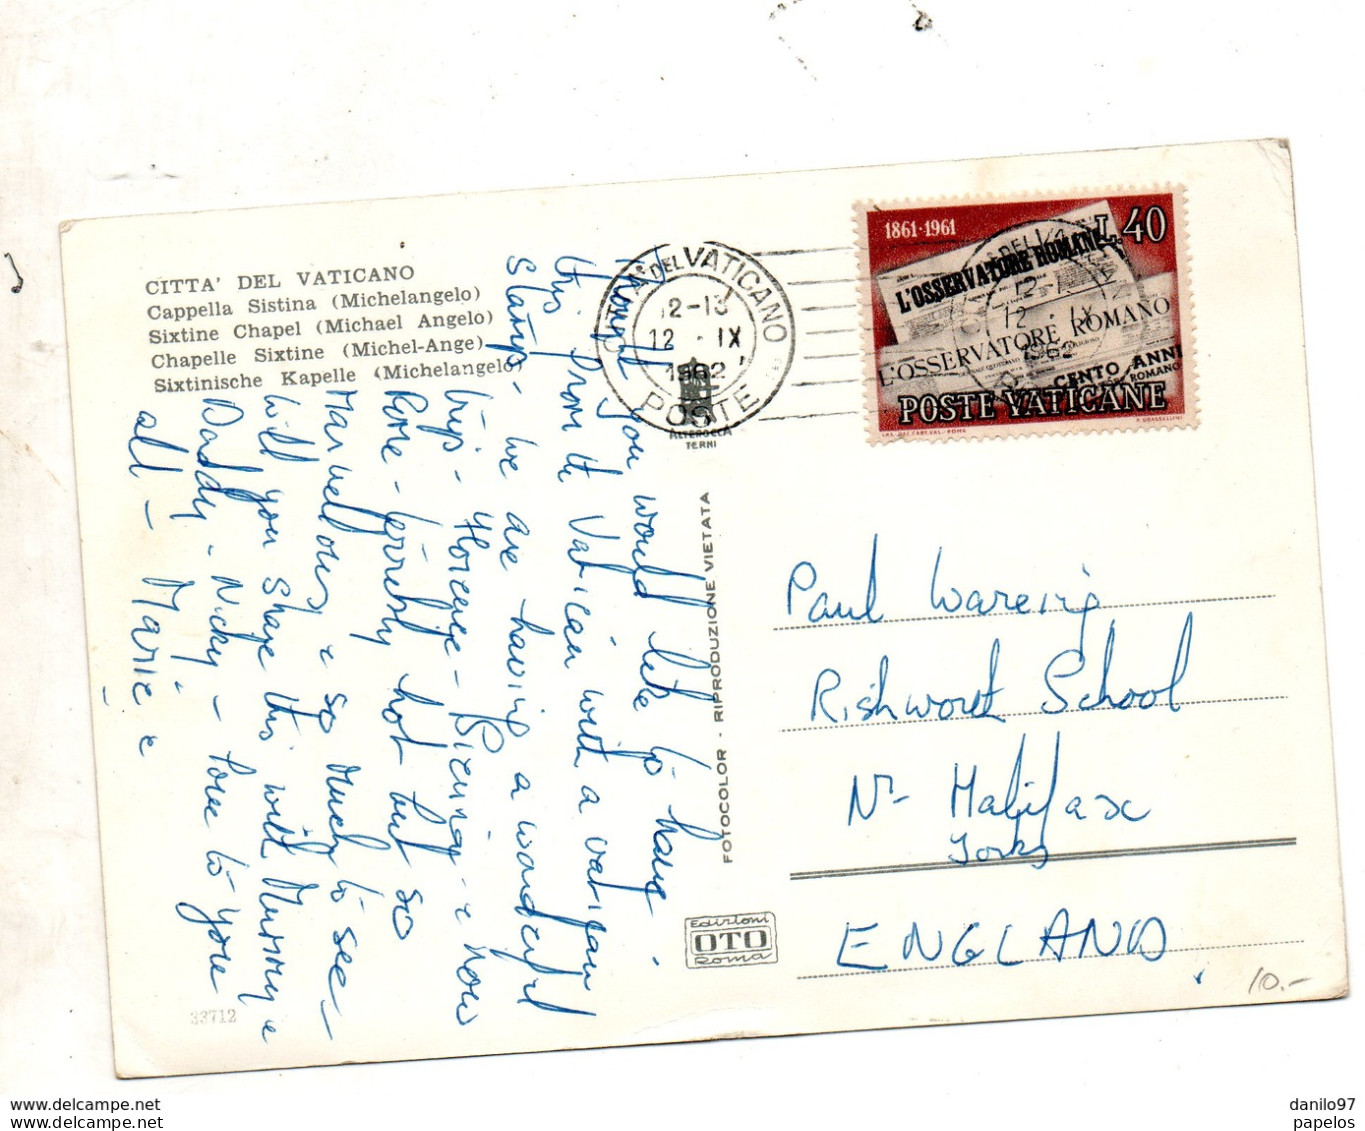 CITTA' DEL VATICANO
Cappella Sistina (Michelangelo)
Sixtine Chapel (Michael Angelo)
Chapelle Sixtine (Michel-Ange)
Sixtinische Kapelle (Michelangelo)
thought you would like to have
this from the Vatican with a vatican
stamp - we are having a wonderful
trip - Florence - Sienna & now
Rome - terribly hot but so
Marvellous & so much to see -
will you share this with Mummy &
Daddy - Nicky - love to you
all - Marie &
33712
CITTA' DEL VATICANO
12-13
12 · IX
1962
POSTE
ALTEROCCA
TERNI
FOTOCOLOR - RIPRODUZIONE VIETATA
Edizioni
OTO
Roma
1861-1961
L. 40
L'OSSERVATORE ROMANO
L'OSSERVATORE ROMANO
CENTO ANNI
ROMANO
POSTE VATICANE
DEL VA
12-1
12 · IX
1962
Paul Wareing
Rishworth School
Nr Halifax
Yorks
ENGLAND
10.-
www.delcampe.net
www.delcampe.net
danilo97
papelos